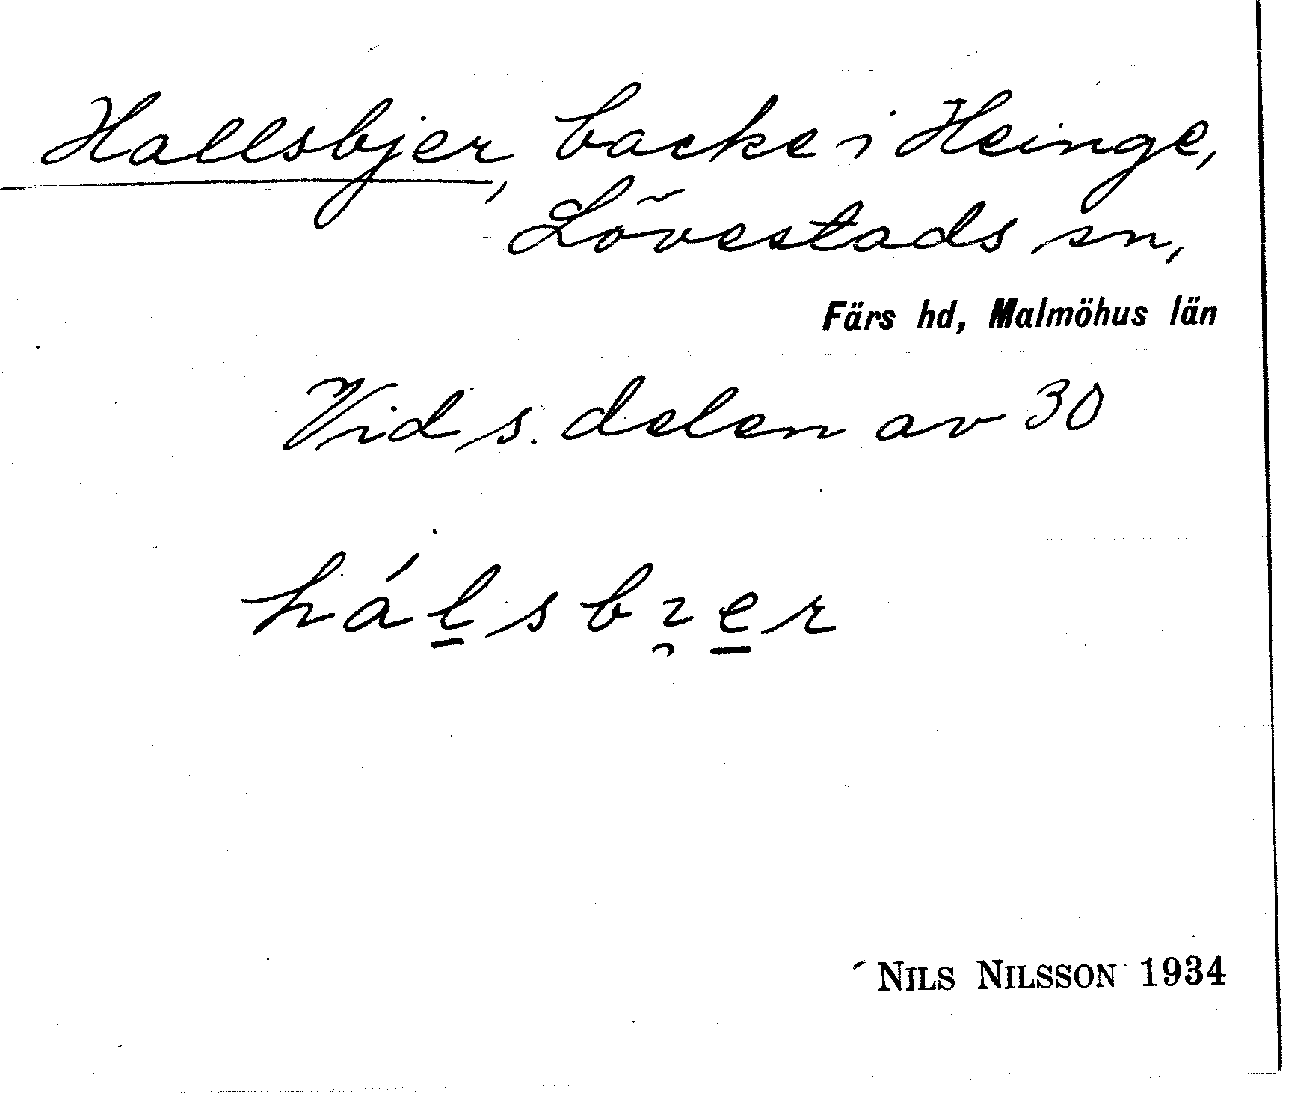 Hallsbjer, backe i Heinge,
Lövestads sn,
Färs hd, Malmöhus län
Vid s. delen av 30
hál̲sbı̯e̲r
NILS NILSSON 1934